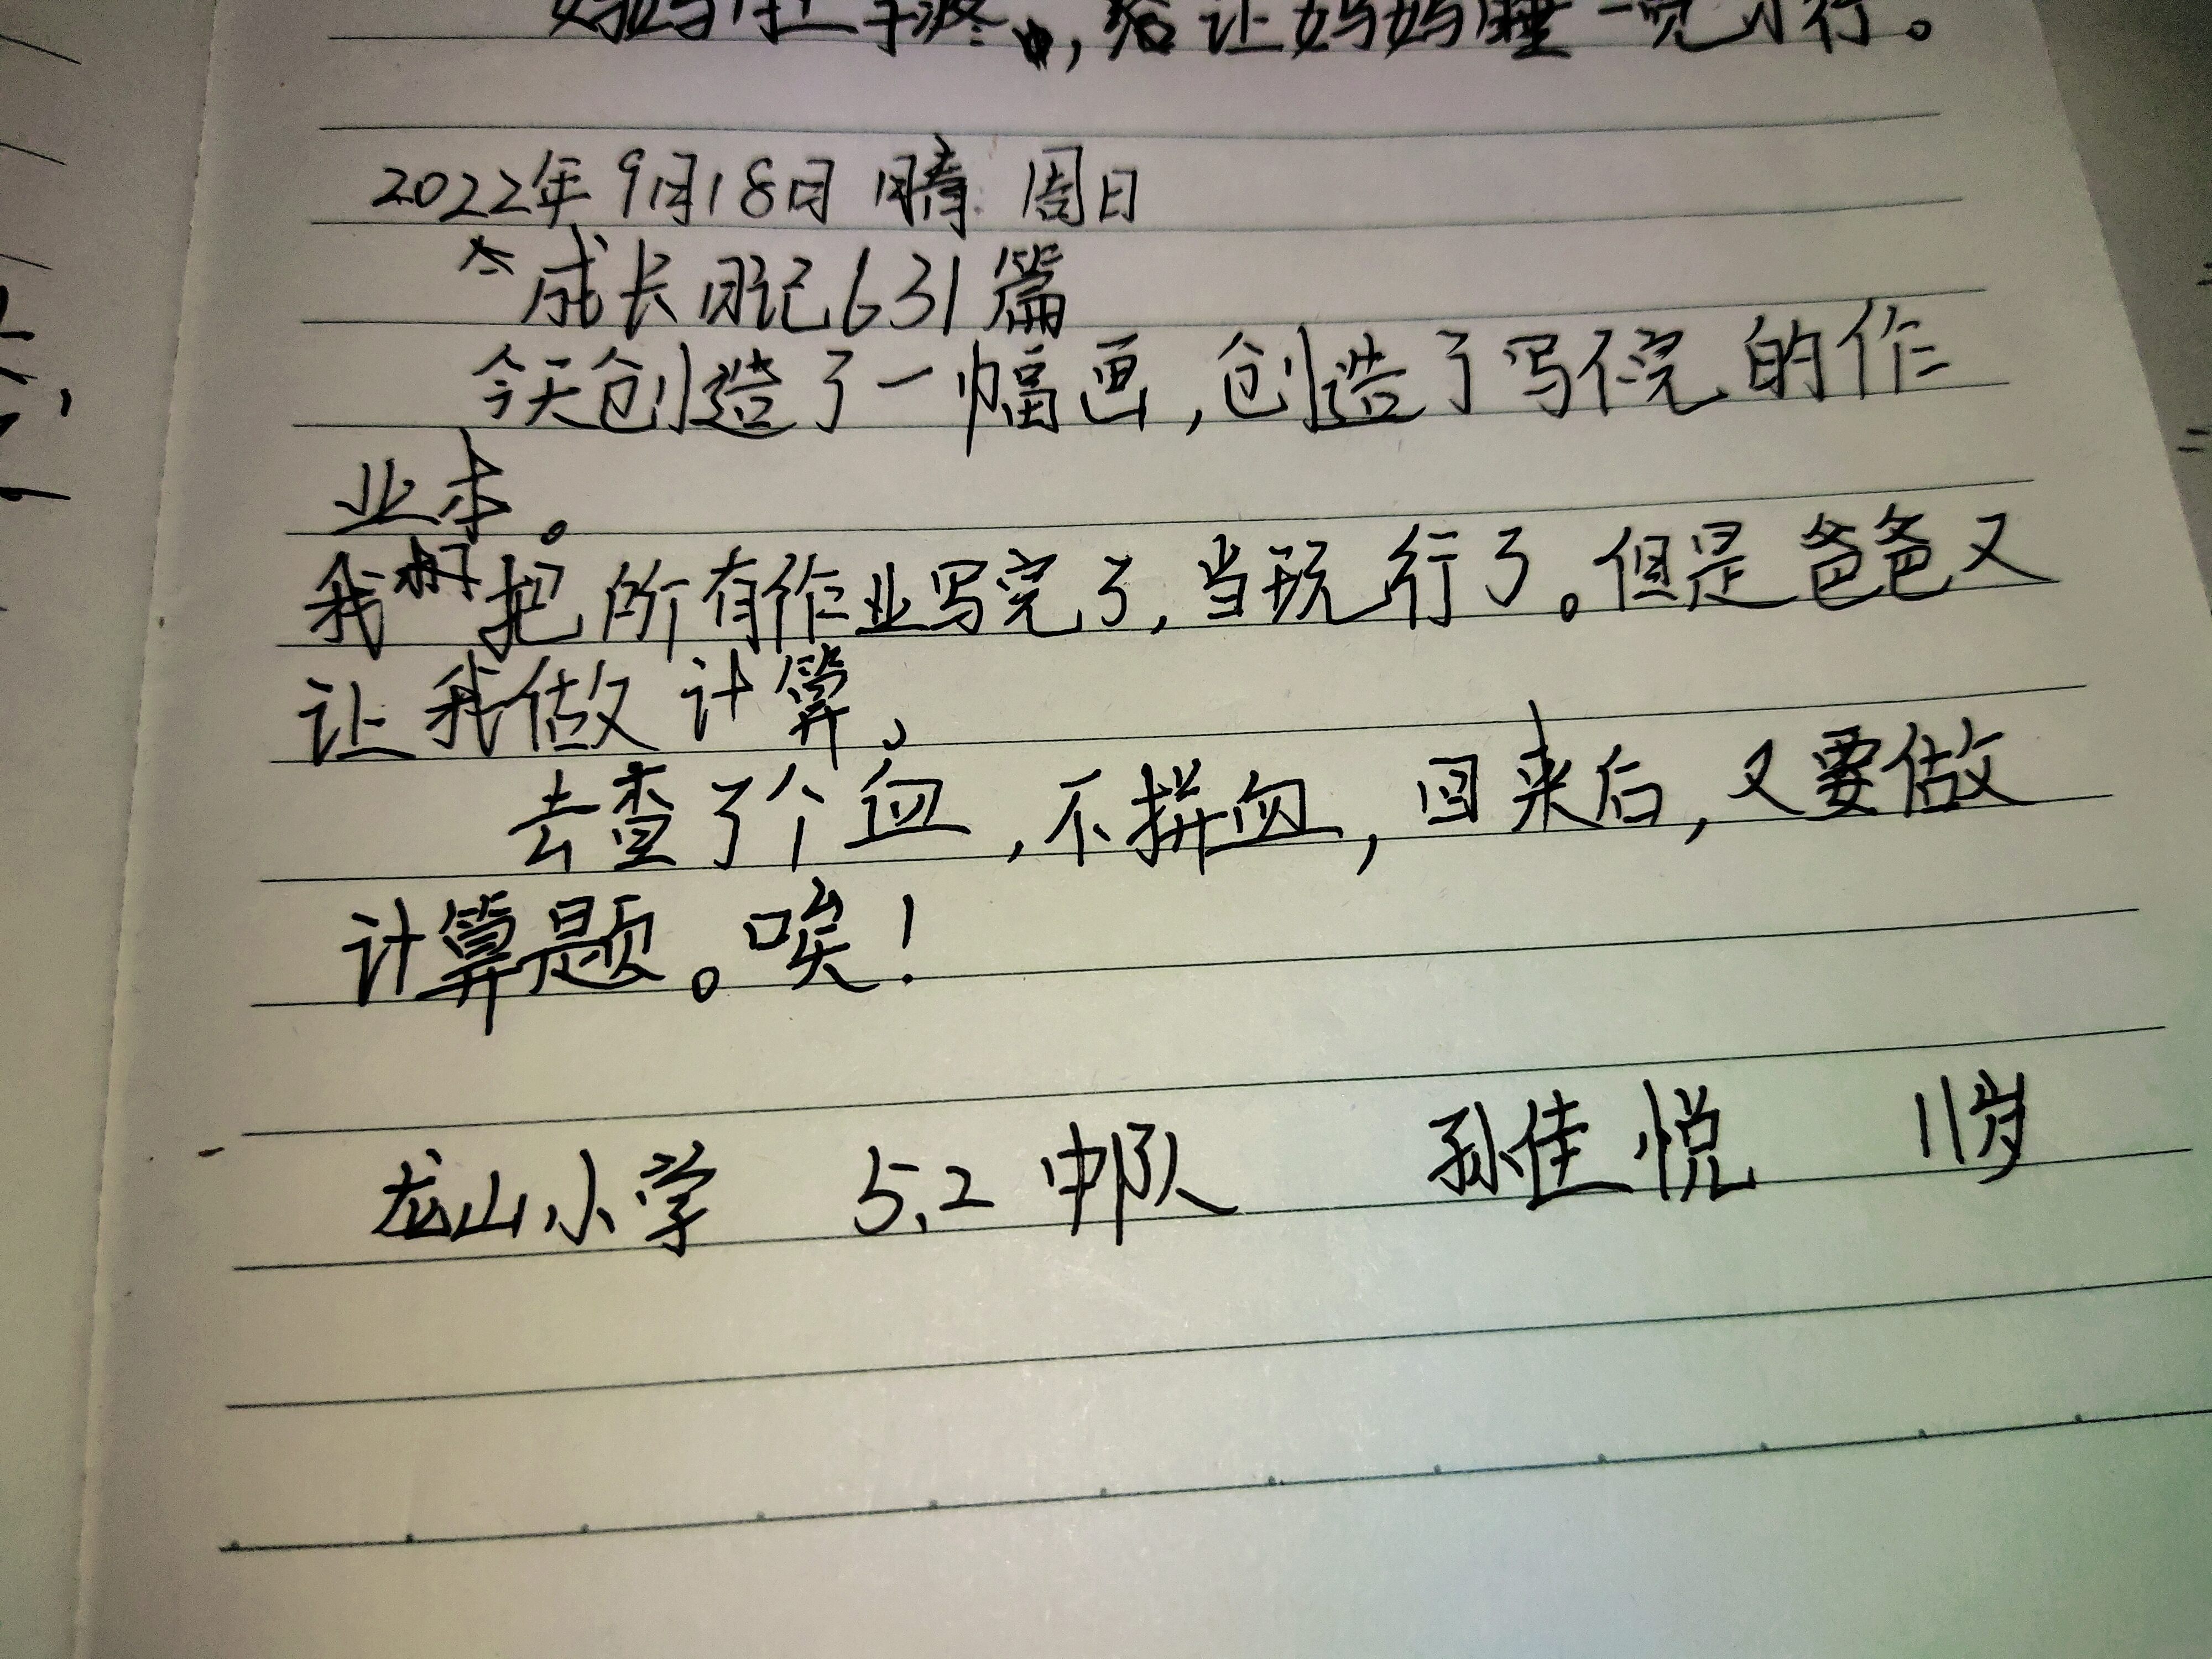 妈妈肚子疼，给让妈妈睡一觉才行。
2022年9月18日 晴 周日
成长日记631篇
今天创造了一幅画，创造了写不完的作
业本。
我把所有作业写完了，当玩行了。但是爸爸又
让我做计算。
去查了个血，不拼血，回来后，又要做
计算题。唉！
龙山小学 5.2 中队 孙佳悦 11岁